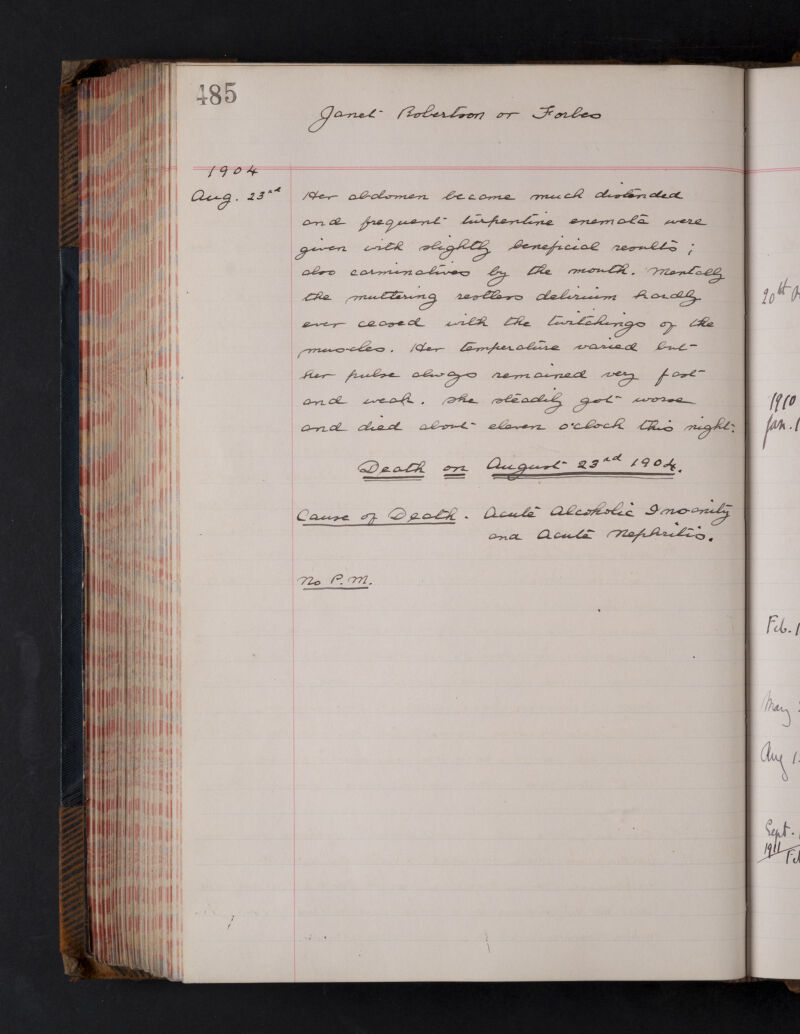 485
Janet Robertson or Forbes
1904
Aug. 23rd Her abdomen became much distended
and frequent turpentine enemata were
given with slightly beneficial results ;
also carminatives by the mouth. Mentally
the muttering restless delirium hardly
ever ceased with the twitchings of the
muscles. Her temperature varied but
her pulse always remained very fast
and weak. She steadily got worse
and died about eleven o'clock this night.
Death on August 23rd 1904.
Cause of Death. Acute Alcoholic Insanity
and Acute Nephritis.
No P.M.
20th
1910
Jan. 1
Feb. 1
May
Aug 1
Sept.
1911